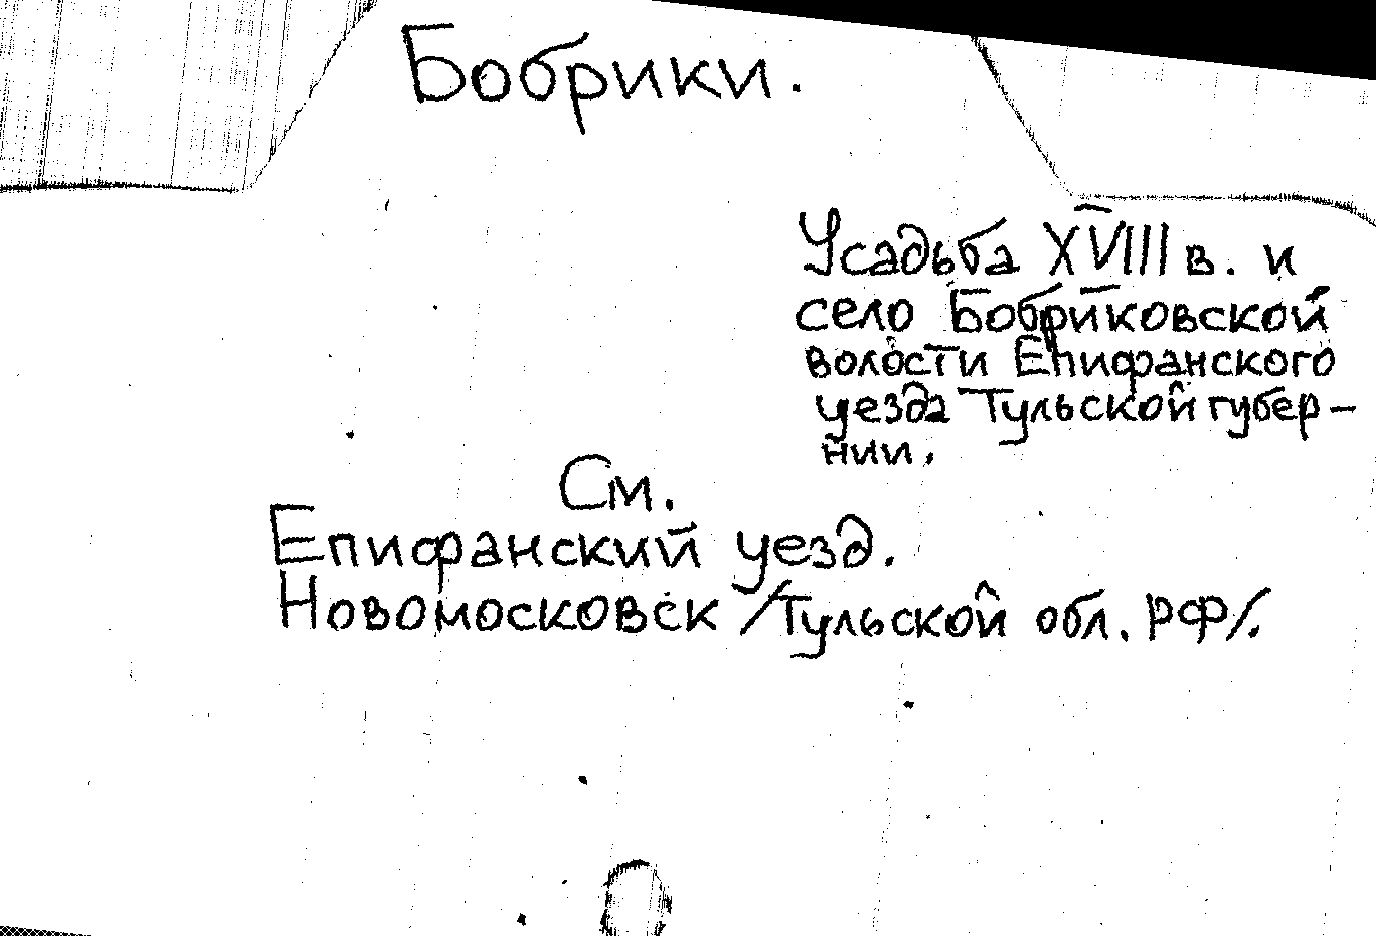 Бобрики.
Усадьба XVIII в. и
село Бобриковской
волости Епифанского
уезда Тульской губер-
нии.
См.
Епифанский уезд.
Новомосковск /Тульской обл. РФ/.